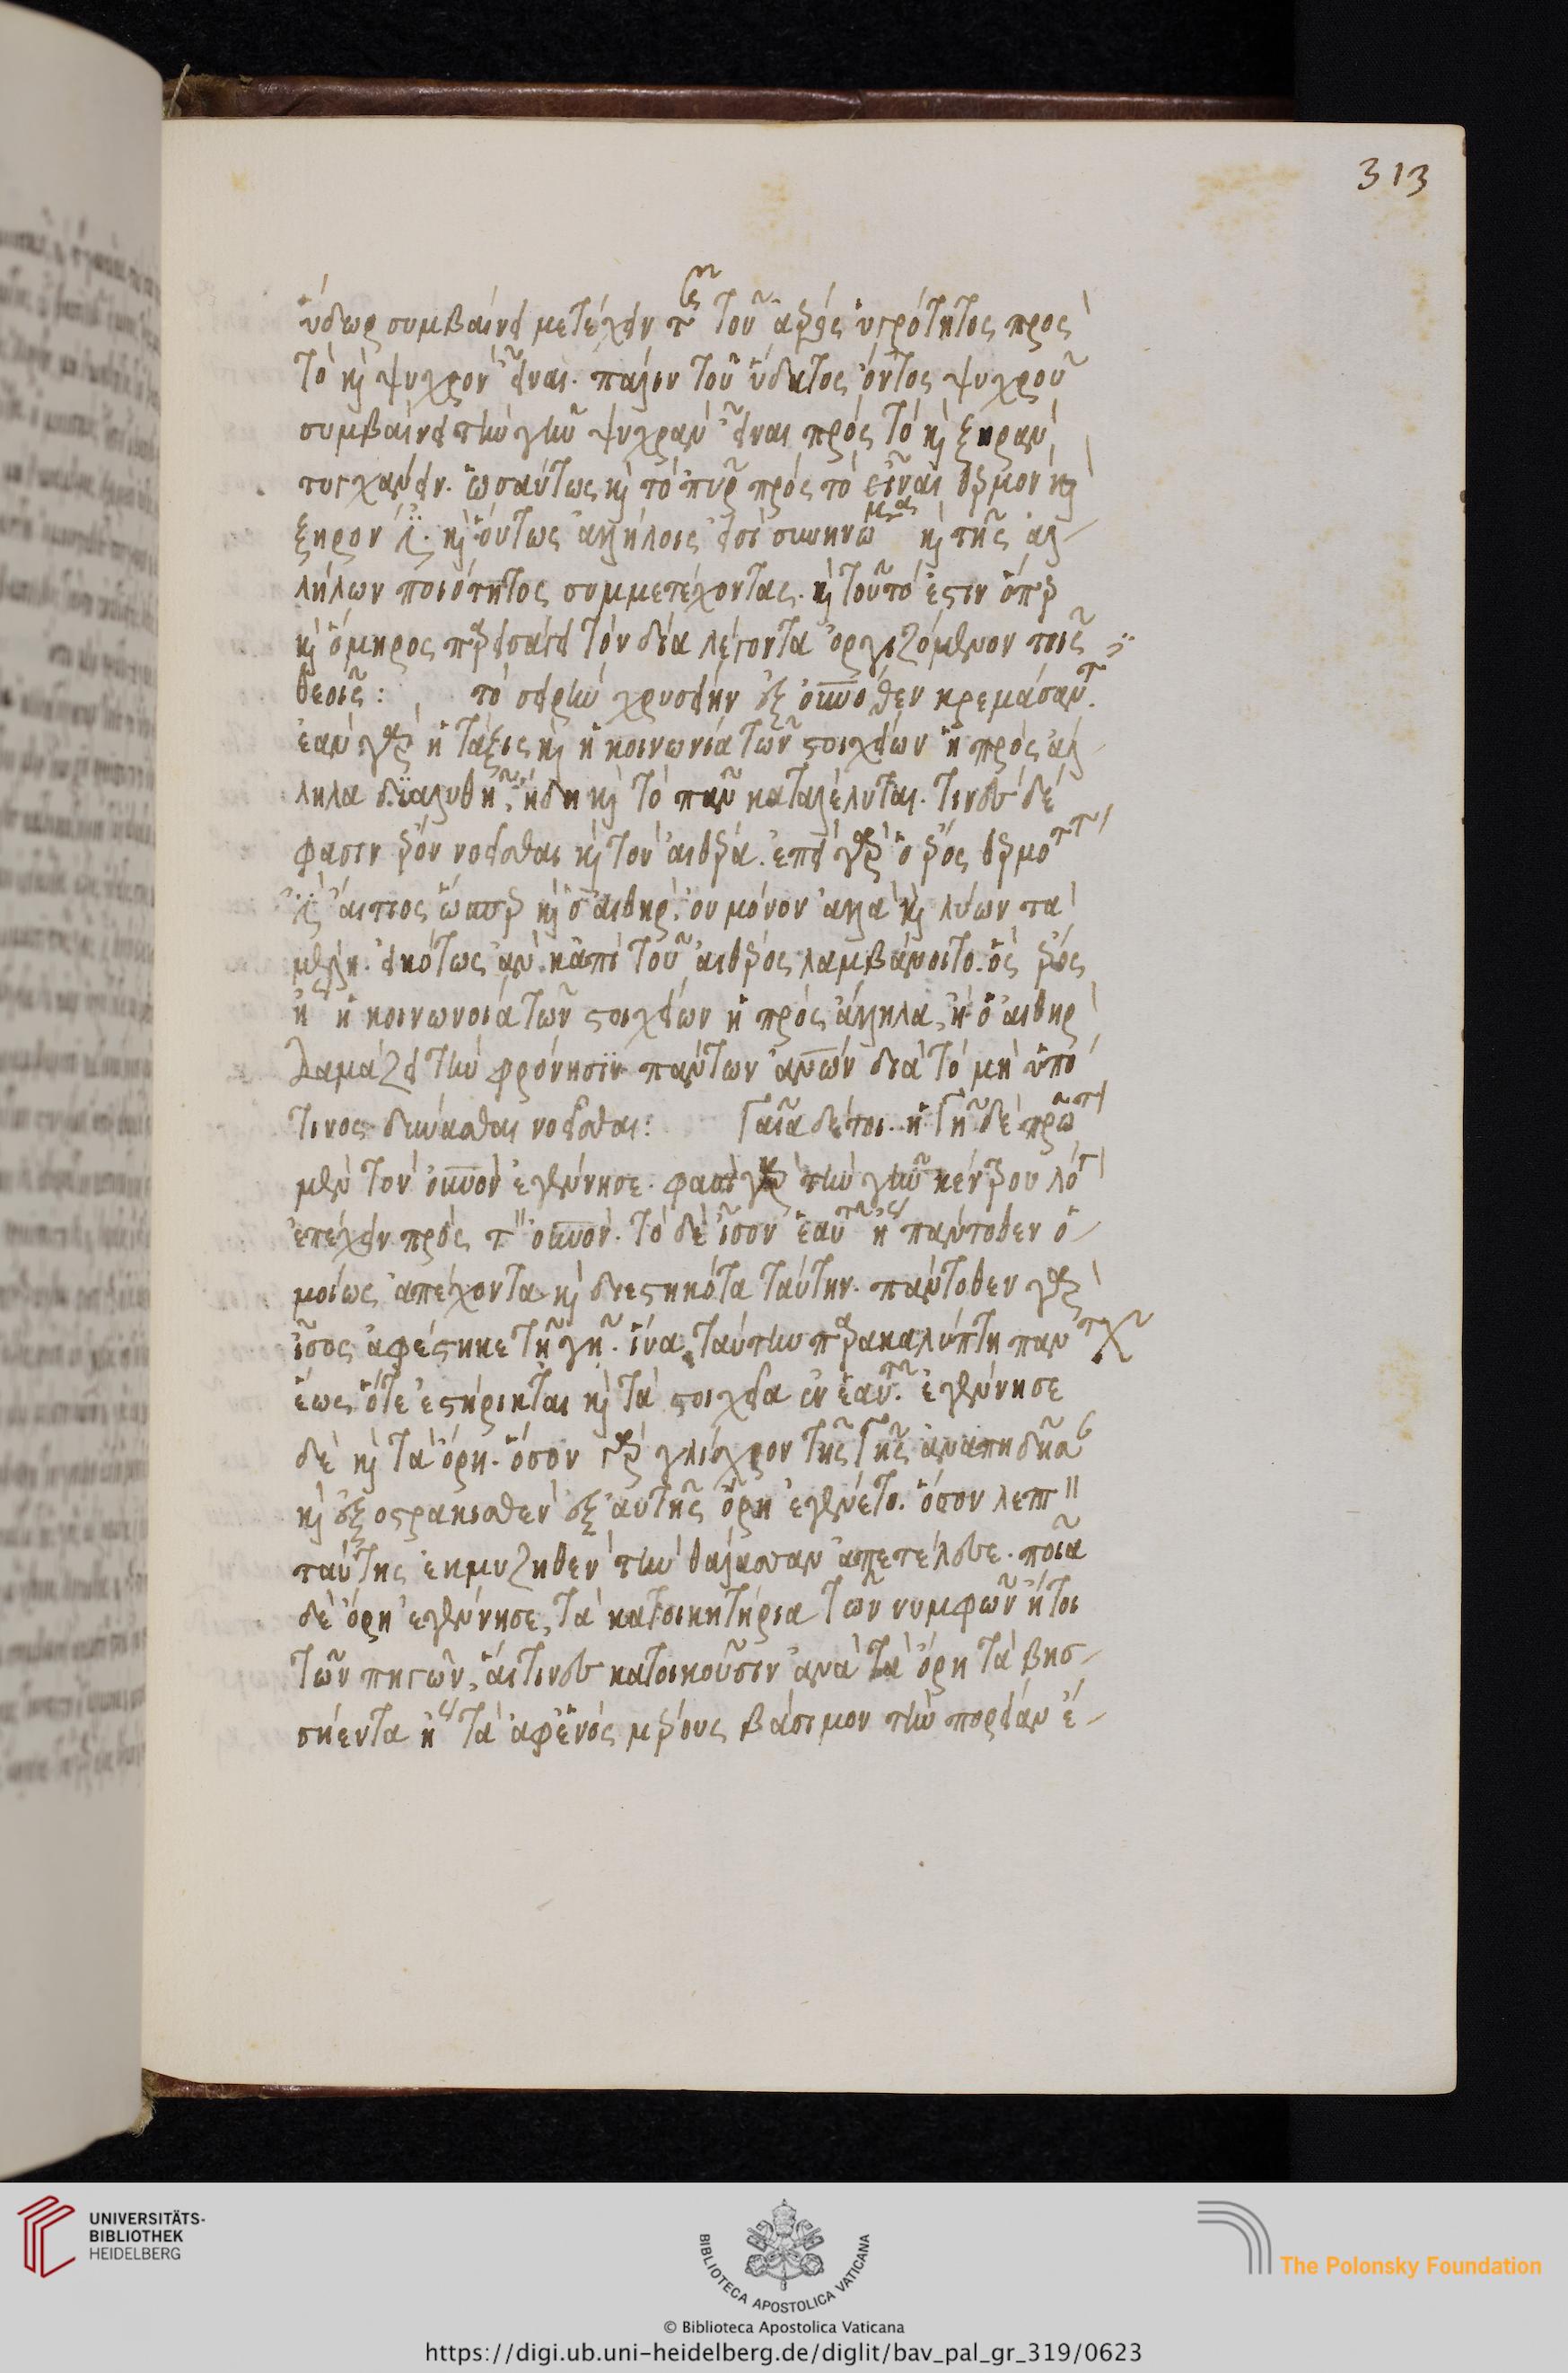 313
ὕδωρ συμβαίνει μετέχειν τῆς τοῦ ἀέρος ὑγρότητος πρὸς
τὸ καὶ ψυχρὸν εἶναι. πάλιν τοῦ ὕδατος ὄντος ψυχροῦ
συμβαίνει τὴν γῆν ψυχρὰν εἶναι πρὸς τὸ καὶ ξηρὰν
τυγχάνειν. ὡσαύτως καὶ τὸ πῦρ πρὸς τὸ εἶναι θερμὸν καὶ
ξηρόν ἐστι. καὶ οὕτως ἀλλήλοις εἰσὶ συνηνωμένα καὶ τῆς ἀλ-
λήλων ποιότητος συμμετέχοντας. καὶ τοῦτό ἐστιν ὅπερ
καὶ ὅμηρος παρεισάγει τὸν δία λέγοντα ὀργιζόμενον τοῖς
θεοῖς: τὸ σειρὴν χρυσείην ἐξ οὐνόθεν κρεμάσαντ.
ἐὰν γὰρ ἡ τάξις καὶ ἡ κοινωνία τῶν στοιχείων ἡ πρὸς ἄλ-
ληλα διαλυθῇ, ἤδη καὶ τὸ πᾶν καταλέλυται. τινὲς δέ
φασιν ἔρον νοεῖσθαι καὶ τὸν αἰθέρα. ἐπεὶ γὰρ ὁ ἔρος θερμοτ
ἐστὶ αἴτιος ὥσπερ καὶ ὁ αἰθήρ. οὐ μόνον ἀλλὰ καὶ λύων τὰ
μέλη. εἰκότως ἂν κἀπὶ τοῦ αἰθέρος λαμβάνοιτο. ὃς ἔρος
ἢ ἡ κοινωνοία τῶν στοιχείων ἡ πρὸς ἄλληλα, ἢ ὁ αἰθὴρ
δαμάζει τὴν φρόνησιν πάντων ἀνῶν διὰ τὸ μὴ ὑπό
τινος δύνασθαι νοεῖσθαι: Γαῖα δέ τοι. ἡ Γῆ δὲ πρῶτ
μὲν τὸν οὐνὸν ἐγέννησε. φασὶ γὰρ τὴν γῆν κέντρου λό
ἐπέχειν πρὸς τ οὐνόν. τὸ δὲ ἶσον ἑαυτῇ ἢ πάντοθεν ὁ-
μοίως ἀπέχοντα καὶ διεστηκότα ταύτην. πάντοθεν γὰρ
ἶσος ἀφέστηκε τῇ γῇ. ἵνα ταύτην παρακαλύπτη παντχ
ἕως ὅτε ἐστήρικται καὶ τὰ στοιχεῖα ἐν ἑαυτῇ. ἐγέννησε
δὲ καὶ τὰ ὄρη. ὅσον γὰρ γλίσχρον τῆς Γῆς ἀναπηδῆσαν
καὶ ἐξοστρακισθὲν ἐξ αὐτῆς ὄρη ἐγένετο. ὅσον λεπτ
ταύτης ἐκμυζηθὲν τὴν θάλασσαν ἀπετέλεσε. ποῖα
δὲ ὄρη ἐγέννησε, τὰ κατοικητήρια τῶν νυμφῶν ἤτοι
τῶν πηγῶν, αἵτινες κατοικοῦσιν ἀνὰ τὰ ὄρη τὰ βησ-
σήεντα ἢ τὰ ἀφ' ἑνὸς μέρους βάσιμον τὴν πορείαν ἔ-
UNIVERSITÄTS-
BIBLIOTHEK
HEIDELBERG
BIBLIOTECA APOSTOLICA VATICANA
The Polonsky Foundation
© Biblioteca Apostolica Vaticana
https://digi.ub.uni-heidelberg.de/diglit/bav_pal_gr_319/0623